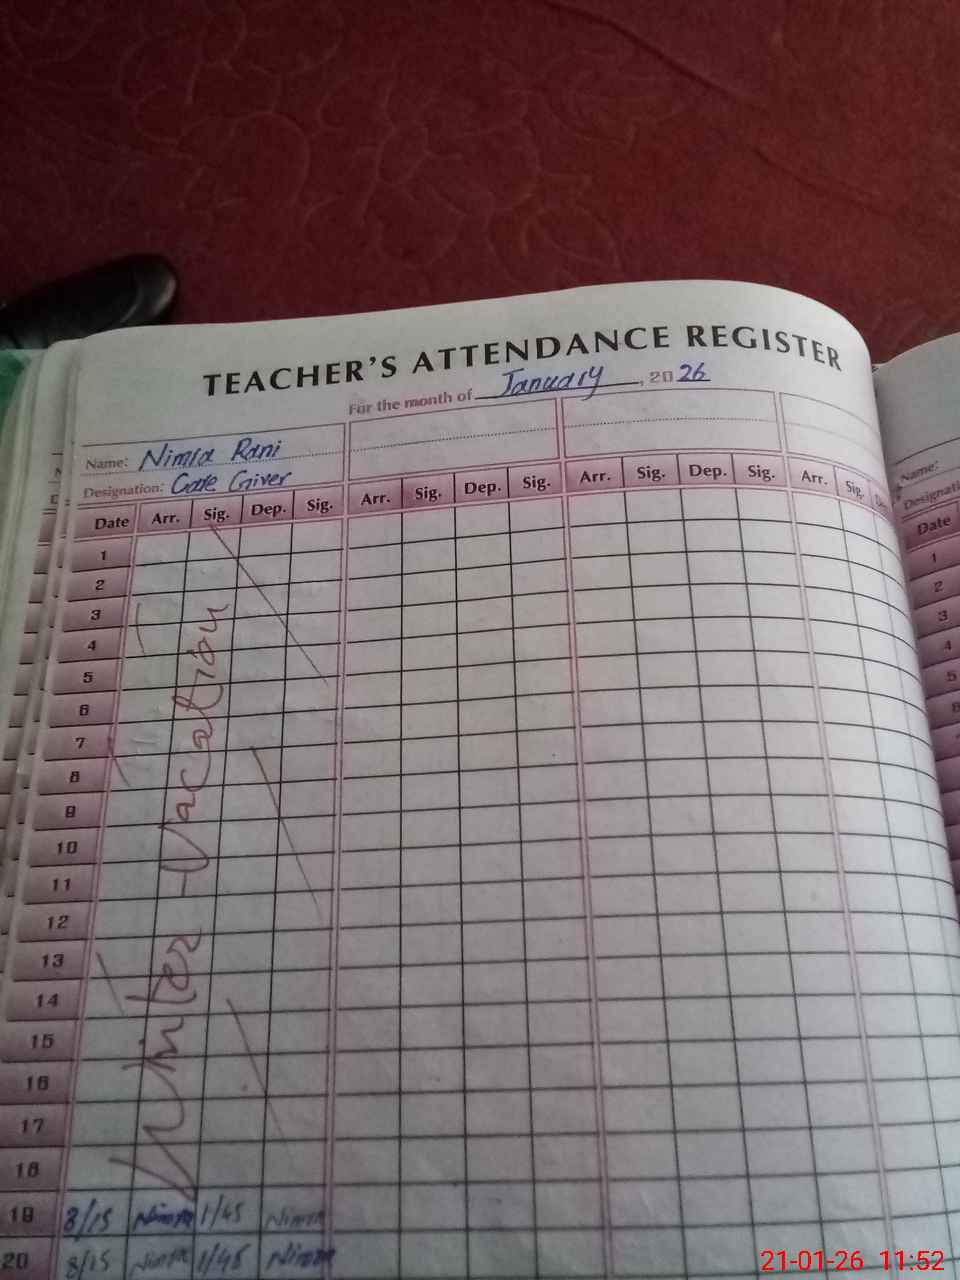 TEACHER'S ATTENDANCE REGISTER
For the month of January, 2026
Name: Nimra Rani
Designation: Care Giver
Date Arr. Sig. Dep. Sig. Arr. Sig. Dep. Sig. Arr. Sig. Dep. Sig. Arr. Sig.
1
2
3
4
5
6
7
8
9
10
11
12
13
14
15
16
17
18
Winter Vacation
19 8/15 Nimra 1/45 Nimra
20 8/15 Nimra 1/45 Nimra
Name:
Date
1
2
3
4
5
21-01-26 11:52